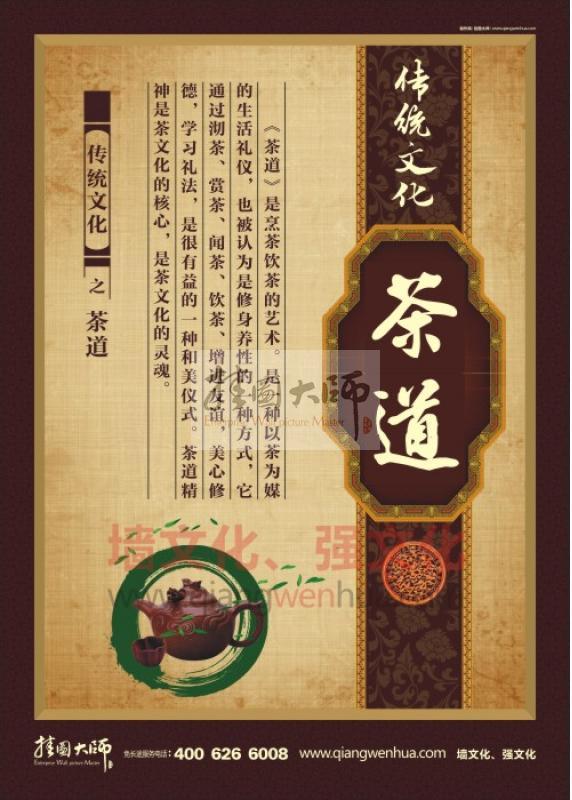 www.qiangwenhua.com
传统文化
茶道
《茶道》是烹茶饮茶的艺术。是一种以茶为媒
的生活礼仪，也被认为是修身养性的一种方式，它
通过沏茶、赏茶、闻茶、饮茶、增进友谊，美心修
德，学习礼法，是很有益的一种和美仪式。茶道精
神是茶文化的核心，是茶文化的灵魂。
传统文化之茶道
挂图大师
Enterprise Wall picture Master
墙文化、强文化
www.qiangwenhua.com
挂图大师
Enterprise Wall picture Master
免长途服务电话：400 626 6008 www.qiangwenhua.com 墙文化、强文化